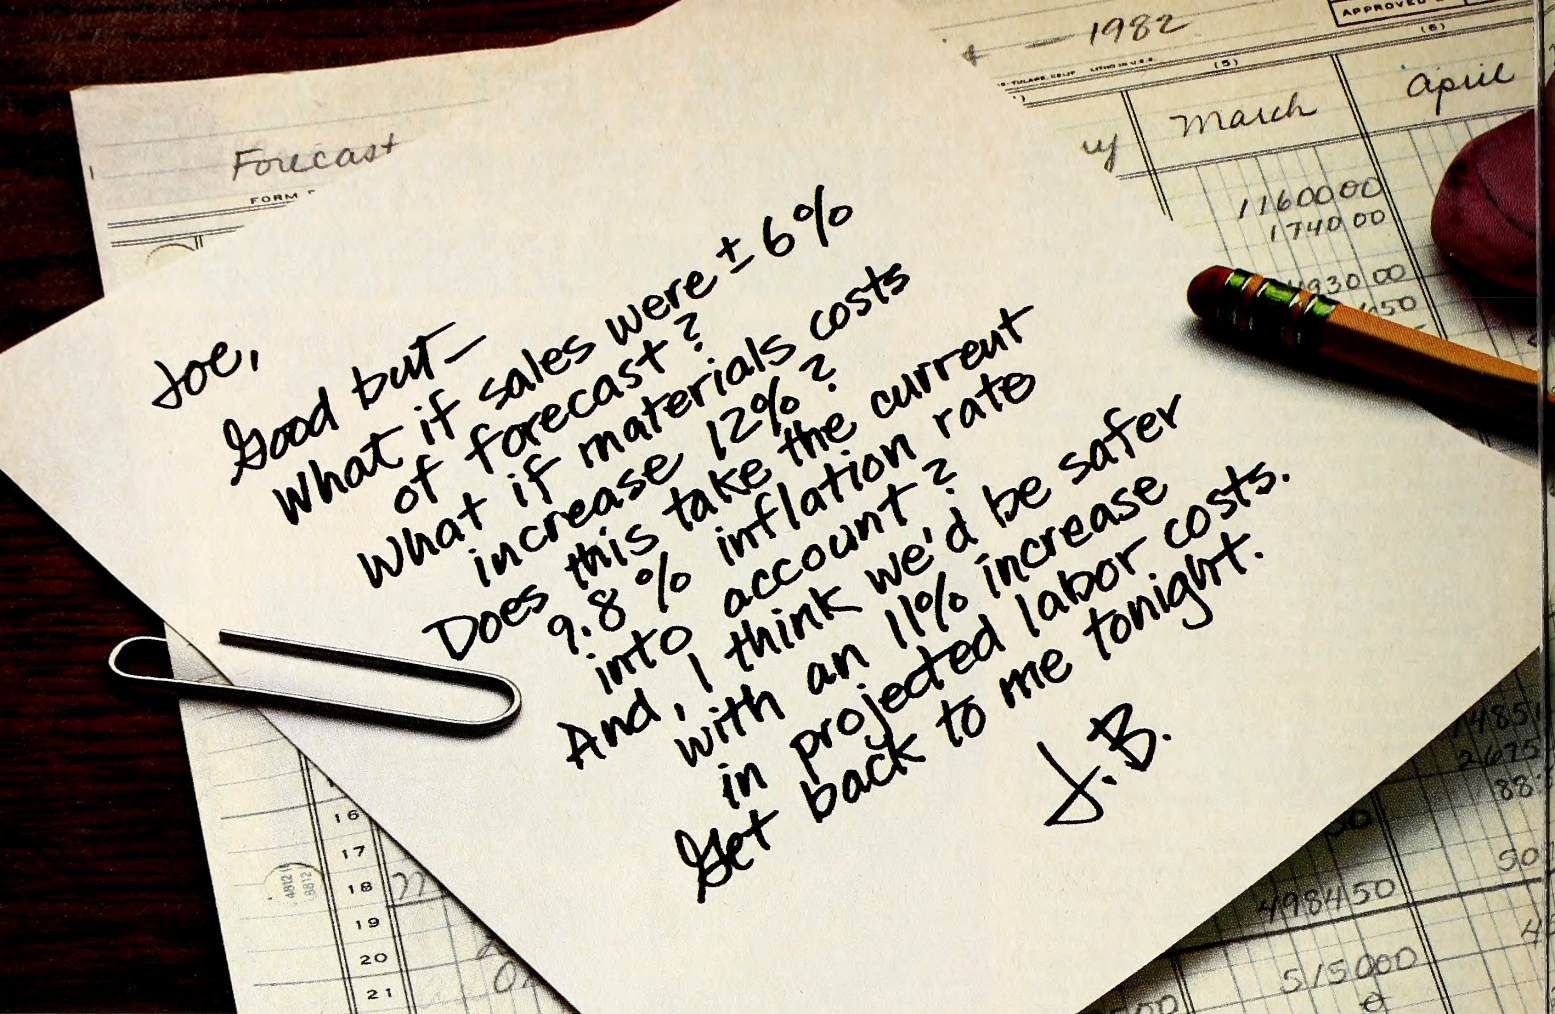 1982
APPROVED
TULARE, CALIF LITHO IN U.S.A.
(5)
(6)
March
April
Forecast
FORM
1160000
1740.00
4930.00
Joe,
Good but—
What if sales were ± 6%
of forecast?
What if materials costs
increase 12%?
Does this take the current
9.8% inflation rate
into account?
And, I think we'd be safer
with an 11% increase
in projected labor costs.
Get back to me tonight.
J.B.
16
17
18
19
20
21
498450
515000